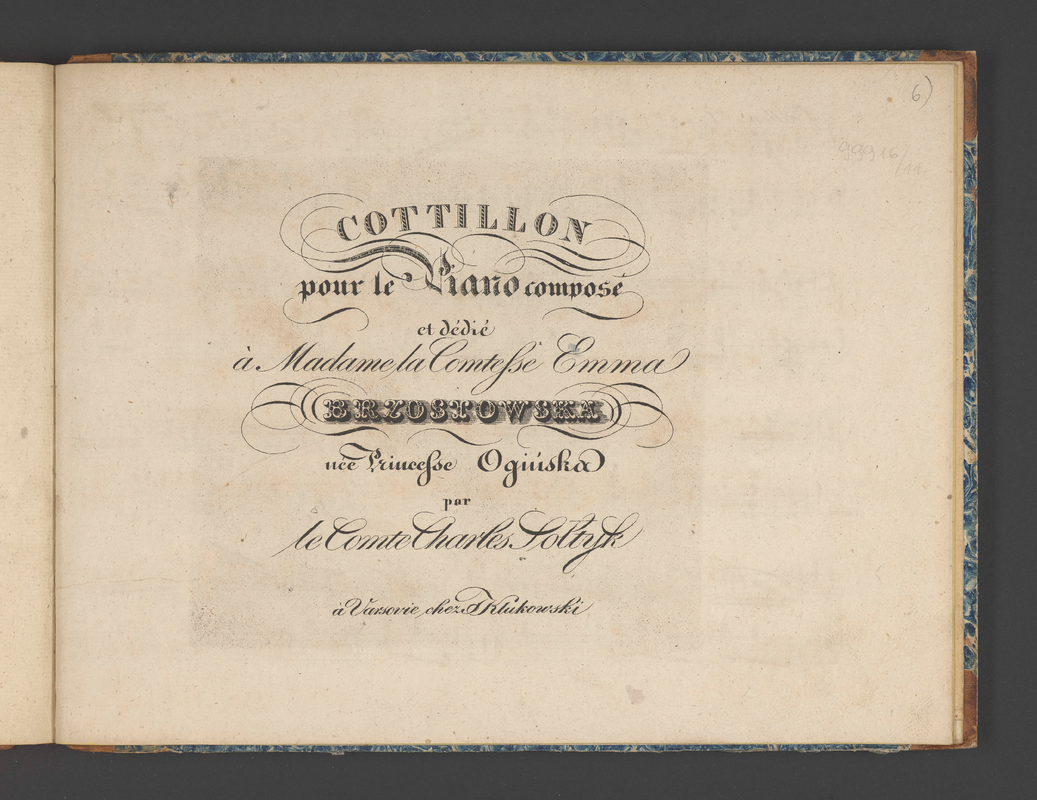 6)
99916/11.
COTTILLON
pour le Piano composé
et dédié
à Madame la Comtesse Emma
BRZOSTOWSKA
née Princesse Ogińska
par
le Comte Charles Sołtyk
à Varsovie, chez J Klukowski